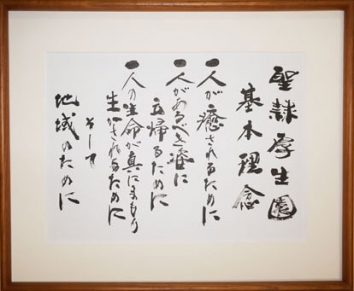 聖隷厚生園
基本理念
一人が癒されるために
一人があるべき姿に
立帰るために
一人の生命が真にまもり
生かされるために
そして
地域のために